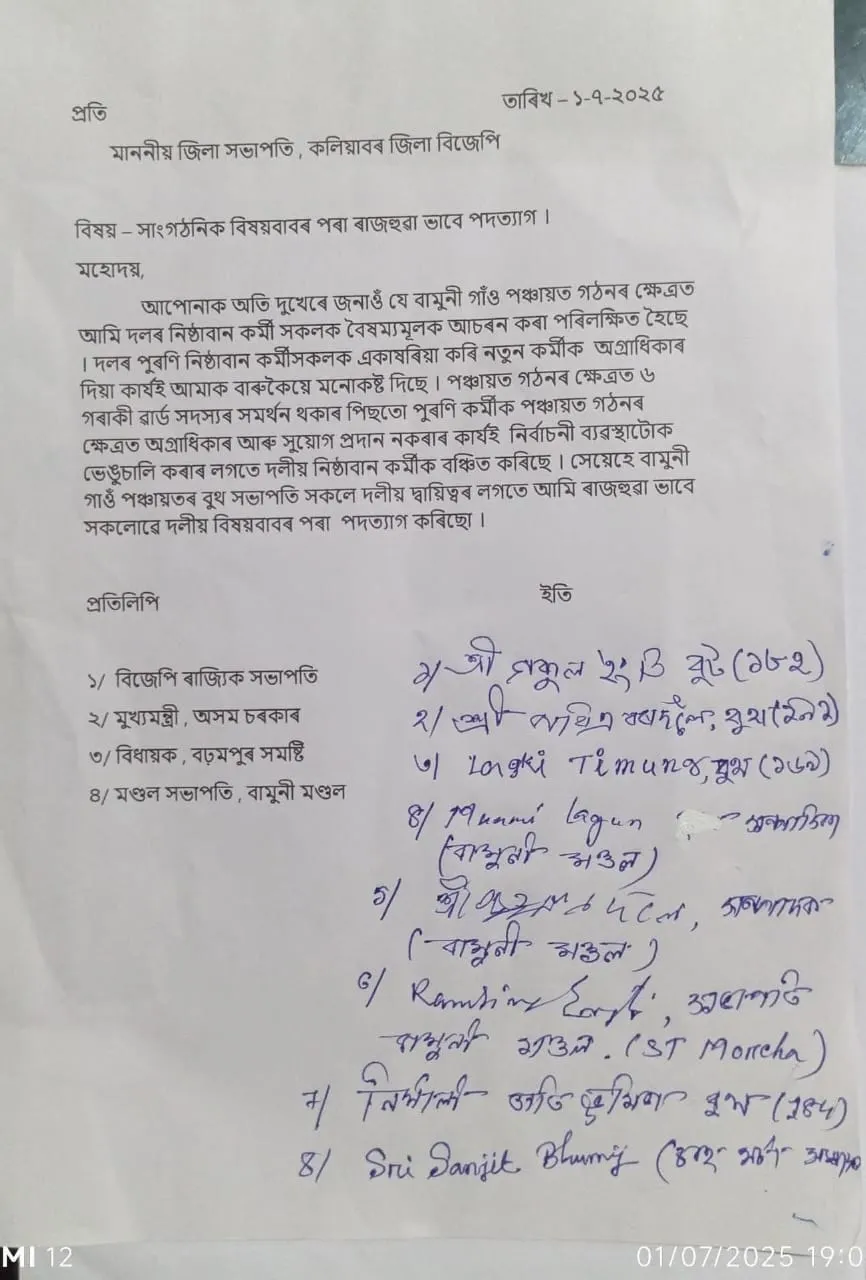 তাৰিখ – ১-৭-২০২৫
প্ৰতি
মাননীয় জিলা সভাপতি , কলিয়াবৰ জিলা বিজেপি
বিষয় – সাংগঠনিক বিষয়বাবৰ পৰা ৰাজহুৱা ভাবে পদত্যাগ ।
মহোদয়,
আপোনাক অতি দুখেৰে জনাওঁ যে বামুনী গাঁও পঞ্চায়ত গঠনৰ ক্ষেত্ৰত
আমি দলৰ নিষ্ঠাবান কৰ্মী সকলক বৈষম্যমূলক আচৰন কৰা পৰিলক্ষিত হৈছে
। দলৰ পুৰণি নিষ্ঠাবান কৰ্মীসকলক একাষৰিয়া কৰি নতুন কৰ্মীক অগ্ৰাধিকাৰ
দিয়া কাৰ্যই আমাক বাৰুকৈয়ে মনোকষ্ট দিছে । পঞ্চায়ত গঠনৰ ক্ষেত্ৰত ৬
গৰাকী ৱাৰ্ড সদস্যৰ সমৰ্থন থকাৰ পিছতো পুৰণি কৰ্মীক পঞ্চায়ত গঠনৰ
ক্ষেত্ৰত অগ্ৰাধিকাৰ আৰু সুযোগ প্ৰদান নকৰাৰ কাৰ্যই নিৰ্বাচনী ব্যৱস্থাটোক
ভেঙুচালি কৰাৰ লগতে দলীয় নিষ্ঠাবান কৰ্মীক বঞ্চিত কৰিছে । সেয়েহে বামুনী
গাওঁ পঞ্চায়তৰ বুথ সভাপতি সকলে দলীয় দ্বায়িত্বৰ লগতে আমি ৰাজহুৱা ভাবে
সকলোৱে দলীয় বিষয়বাবৰ পৰা পদত্যাগ কৰিছো ।
প্ৰতিলিপি
ইতি
১/ বিজেপি ৰাজ্যিক সভাপতি
২/ মুখ্যমন্ত্ৰী , অসম চৰকাৰ
৩/ বিধায়ক , বঢ়মপুৰ সমষ্টি
৪/ মণ্ডল সভাপতি , বামুনী মণ্ডল
১/ শ্ৰী
২/ শ্ৰী বৰদলৈ, বুথ
৩/ Longki Timung, বুথ
৪/ Munmi Lagun
(বামুনী মণ্ডল)
৫/ শ্ৰী সম্পাদক
(বামুনী মণ্ডল)
৬/ সভাপতি
বামুনী মণ্ডল. (ST Morcha)
7/ বুথ
8/ Sri Sanjit Bhumij
MI 12
01/07/2025 19:0